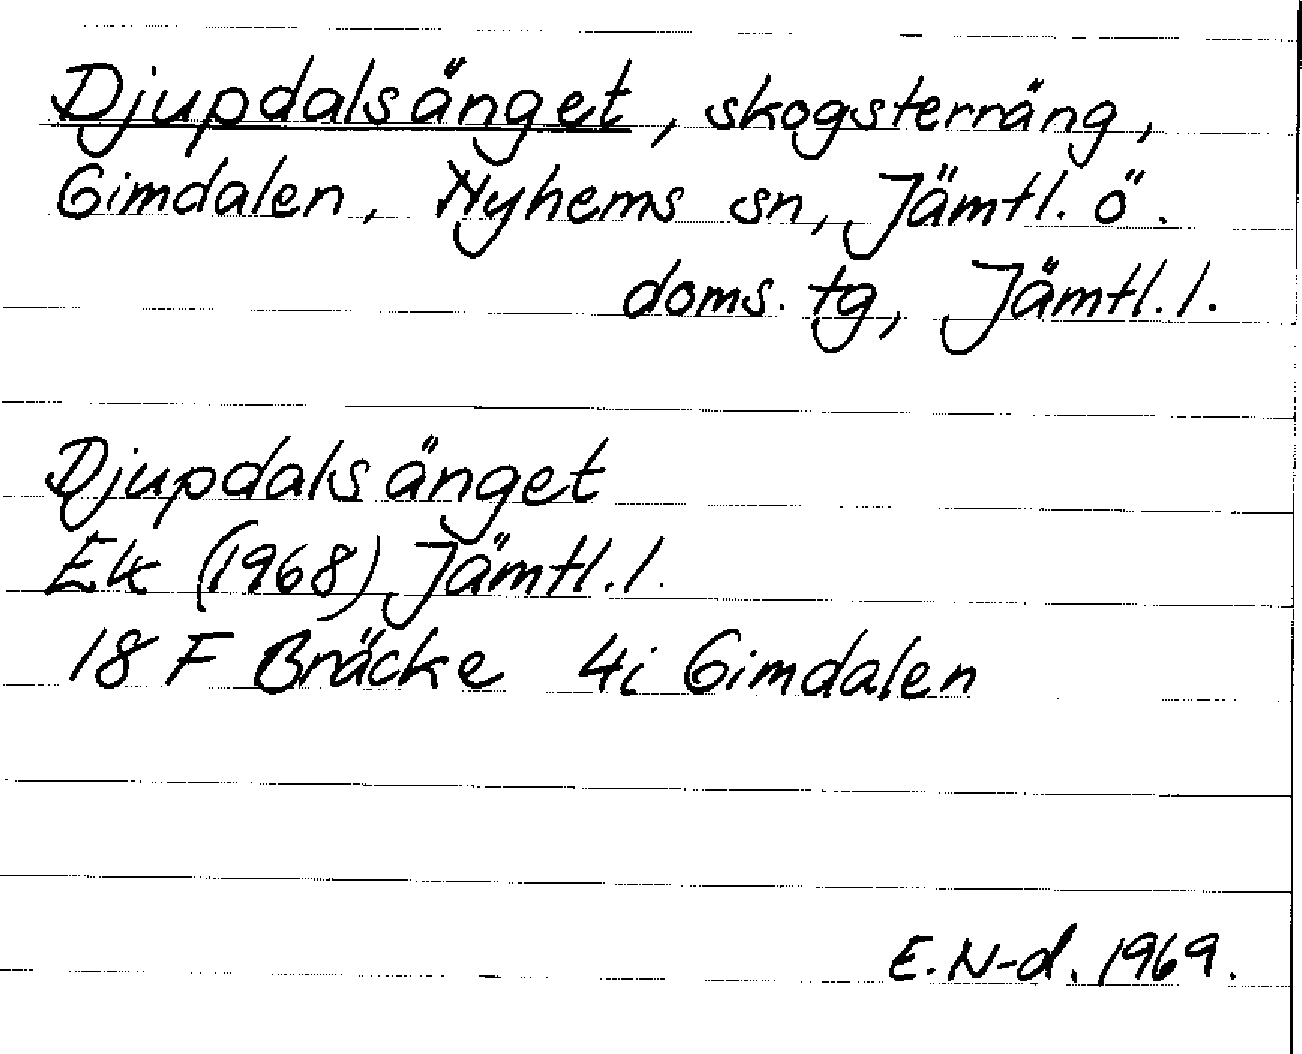 Djupdalsänget, skogsterräng,
Gimdalen, Nyhems sn, Jämtl. ö.
doms. tg, Jämtl. l.
Djupdalsänget
Ek (1968) Jämtl. l.
18 F Bräcke 4i Gimdalen
E. N-d. 1969.